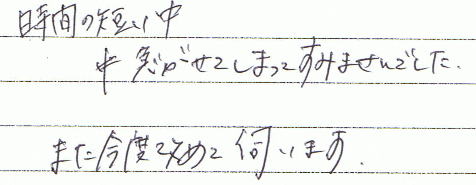 時間の短い中
中 急がせてしまってすみませんでした.
また今度改めて伺います.